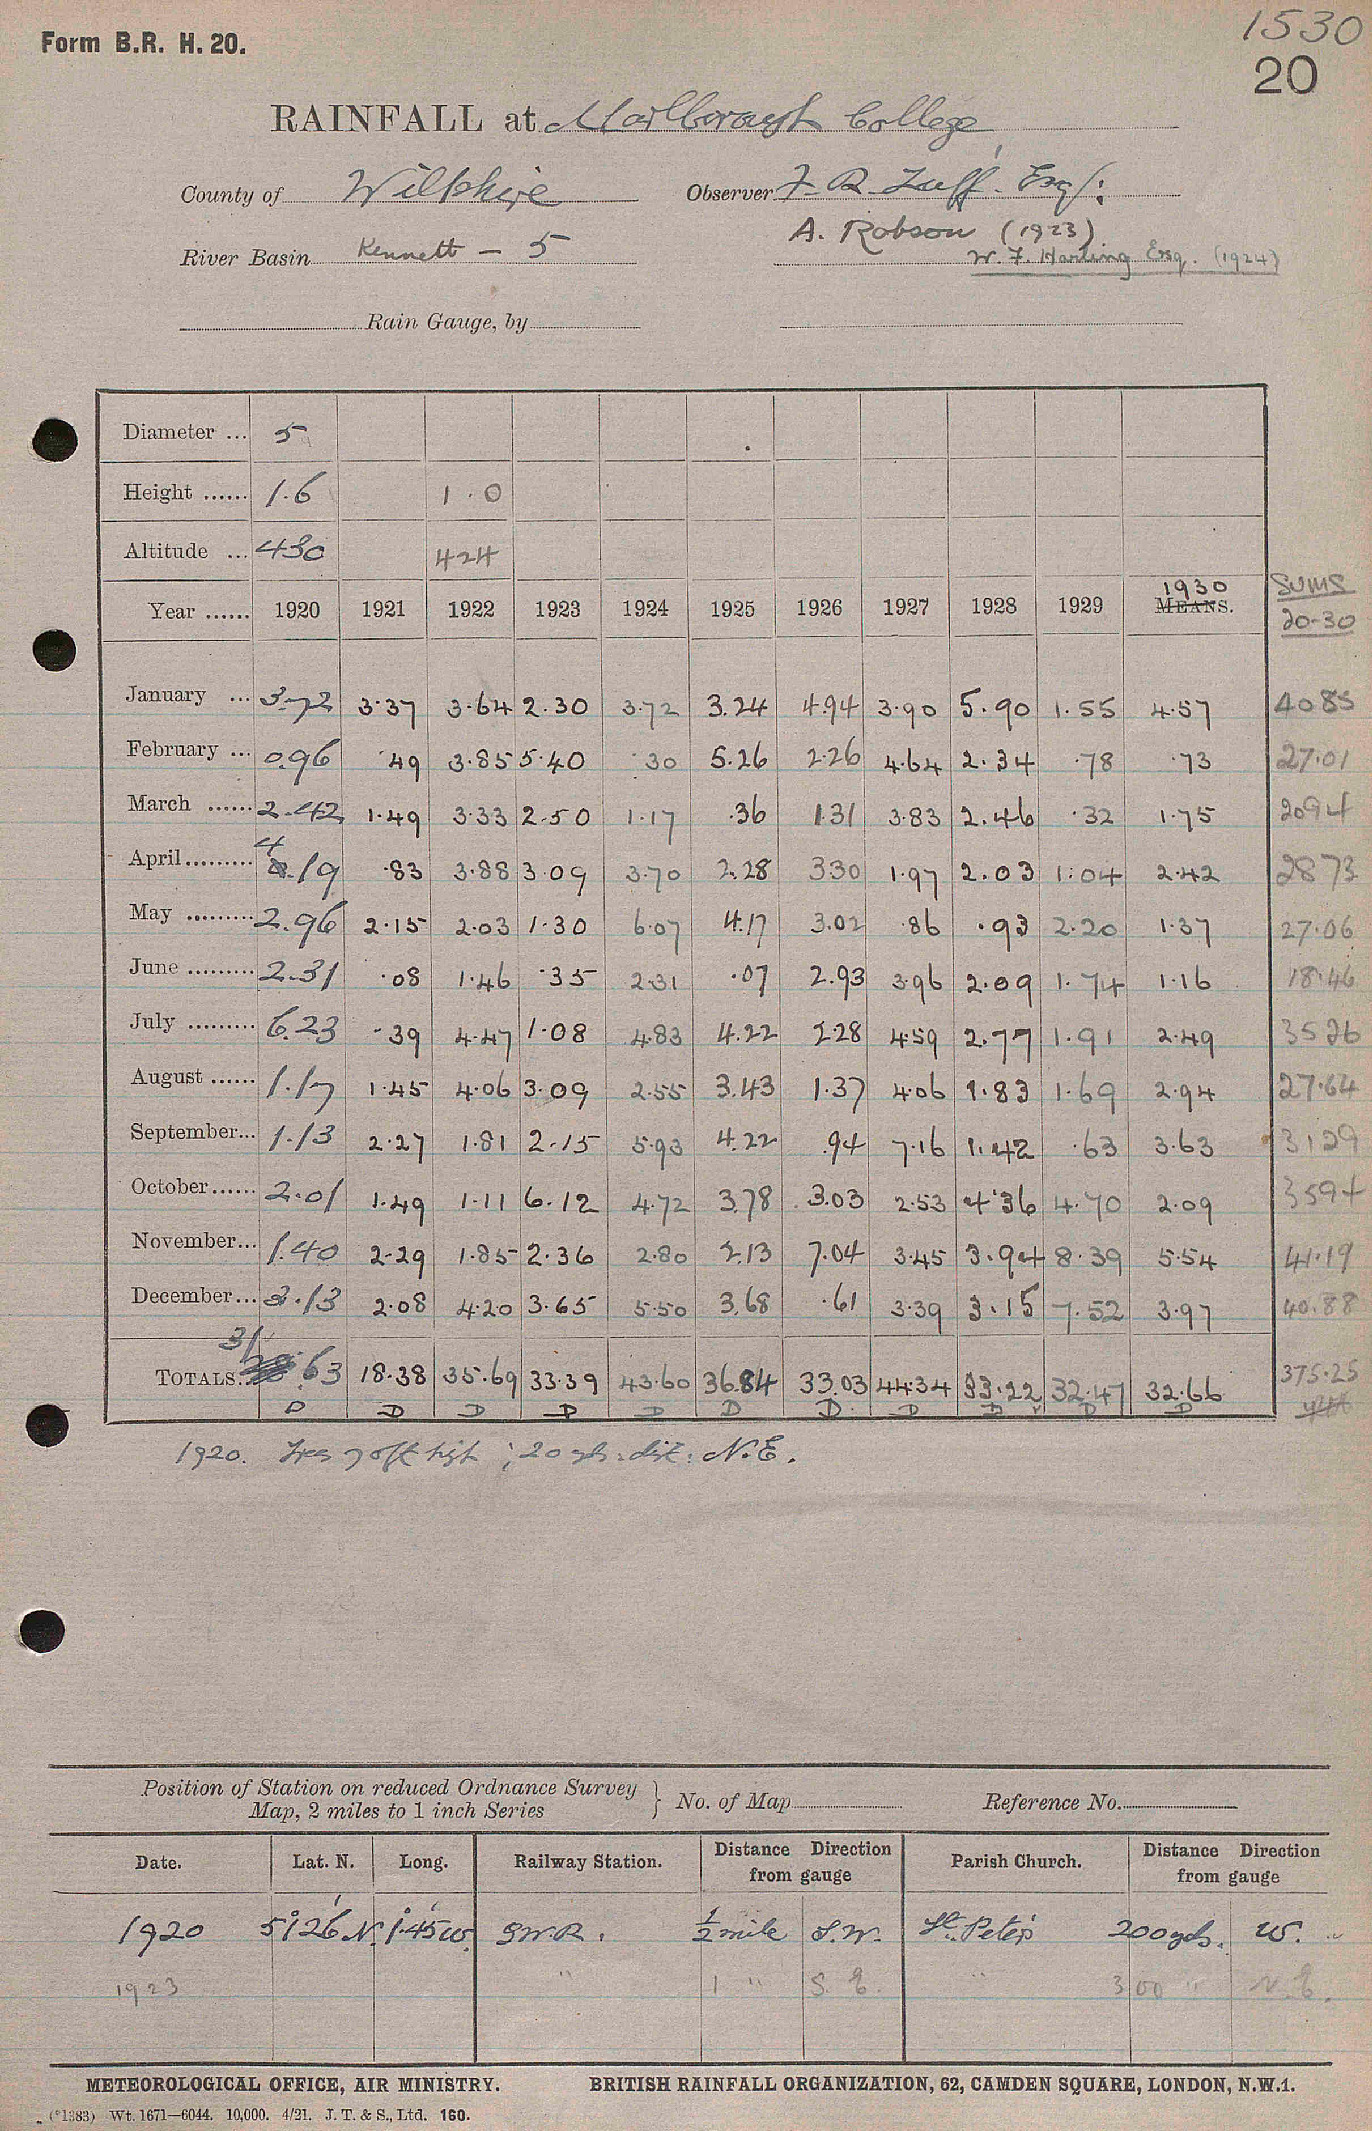 1530
Form B.R. H. 20.
20
RAINFALL at Marlborough College
County of Wiltshire Observer F. R. Esq:
A. Robson (1923)
River Basin Kennett - 5 W. F. Harling Esq. (1924)
Rain Gauge, by
Diameter ... 5
Height ...... 1.6 1.0
Altitude ... 430 424
Year ...... 1920 1921 1922 1923 1924 1925 1926 1927 1928 1929 1930 MEANS. SUMS 20-30
January ... 3.72 3.37 3.64 2.30 3.72 3.24 4.94 3.90 5.90 1.55 4.57 40.85
February ... 0.96 .49 3.85 5.40 .30 5.26 2.26 4.64 2.34 .78 .73 27.01
March ...... 2.42 1.49 3.33 2.50 1.17 .36 1.31 3.83 2.46 .32 1.75 20.94
April......... 4.19 .83 3.88 3.09 3.70 2.28 3.30 1.97 2.03 1.04 2.42 28.73
May ......... 2.96 2.15 2.03 1.30 6.07 4.17 3.02 .86 .93 2.20 1.37 27.06
June ......... 2.31 .08 1.46 .35 2.31 .07 2.93 3.96 2.09 1.74 1.16 18.46
July ......... 6.23 .39 4.47 1.08 4.83 4.22 2.28 4.59 2.77 1.91 2.49 35.26
August ...... 1.17 1.45 4.06 3.09 2.55 3.43 1.37 4.06 1.83 1.69 2.94 27.64
September... 1.13 2.27 1.81 2.15 5.93 4.22 .94 7.16 1.42 .63 3.63 31.29
October...... 2.01 1.49 1.11 6.12 4.72 3.78 3.03 2.53 4.36 4.70 2.09 35.94
November... 1.40 2.29 1.85 2.36 2.80 2.13 7.04 3.45 3.94 8.39 5.54 41.19
December... 3.13 2.08 4.20 3.65 5.50 3.68 .61 3.39 3.15 7.52 3.97 40.88
TOTALS. 31.63 18.38 35.69 33.39 43.60 36.84 33.03 44.34 33.22 32.47 32.66 375.25
D D D D D D D D D D D
1920. Tree 70ft high ; 20 yds. dist: N.E.
Position of Station on reduced Ordnance Survey
Map, 2 miles to 1 inch Series } No. of Map Reference No.
Date. Lat. N. Long. Railway Station. Distance Direction from gauge Parish Church. Distance Direction from gauge
1920 51°26' N. 1°45' W. G.W.R. ½ mile S.W. St. Peter's 200 yds. W.
1923 " 1 " S.E. " 300 " N.E.
METEOROLOGICAL OFFICE, AIR MINISTRY. BRITISH RAINFALL ORGANIZATION, 62, CAMDEN SQUARE, LONDON, N.W.1.
(*1383) Wt. 1671—6044. 10,000. 4/21. J. T. & S., Ltd. 160.